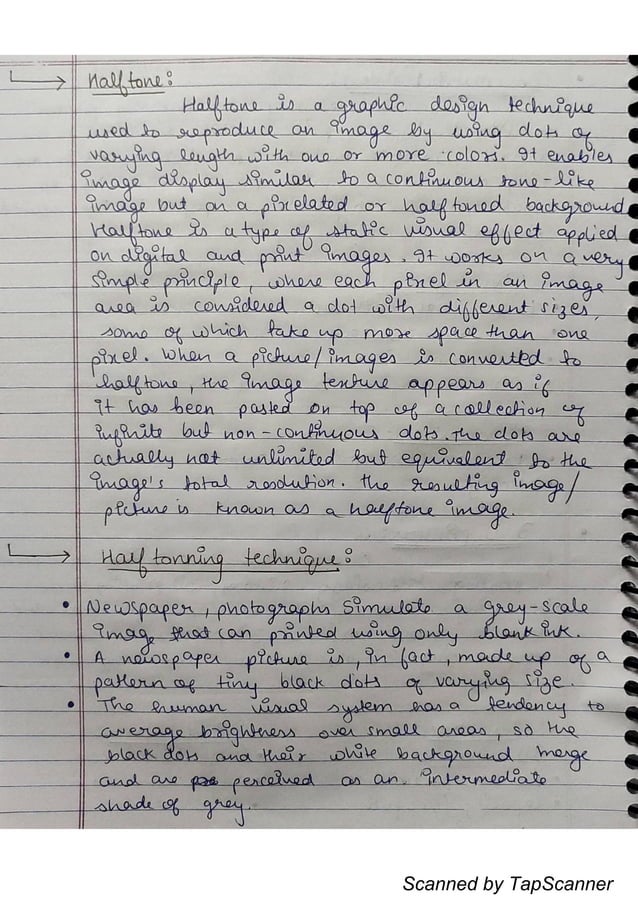 Halftone:
Halftone is a graphic design technique
used to reproduce an image by using dots of
varying length with one or more colors. It enables
image display similar to a continuous tone-like
image but on a pixelated or halftoned background
Halftone is a type of static visual effect applied
on digital and print images. It works on a very
simple principle, where each pixel in an image
area is considered a dot with different sizes,
some of which take up more space than one
pixel. When a picture/images is converted to
halftone, the image texture appears as if
it has been pasted on top of a collection of
infinite but non-continuous dots. The dots are
actually not unlimited but equivalent to the
image's total resolution. The resulting image/
picture is known as a halftone image.
Halftonning technique:
• Newspaper, photographs Simulate a grey-scale
image that can printed using only blank ink.
• A newspaper picture is, in fact, made up of a
pattern of tiny black dots of varying size.
• The human visual system has a tendency to
average brightness over small areas, so the
black dots and their white background merge
and are perceived as an intermediate
shade of grey.
Scanned by TapScanner